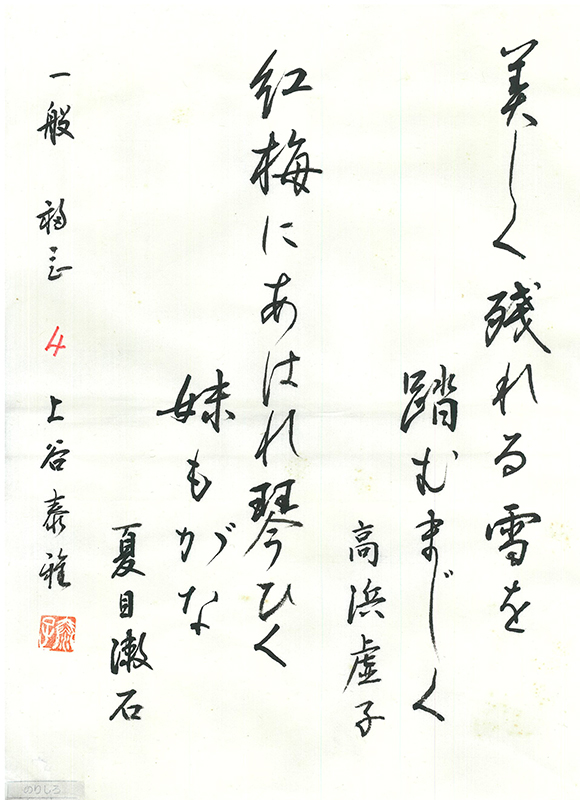 美しく残れる雪を
踏むまじく
高浜虚子
紅梅にあはれ琴ひく
妹もがな
夏目漱石
一般
4
上谷泰雅
のりしろ